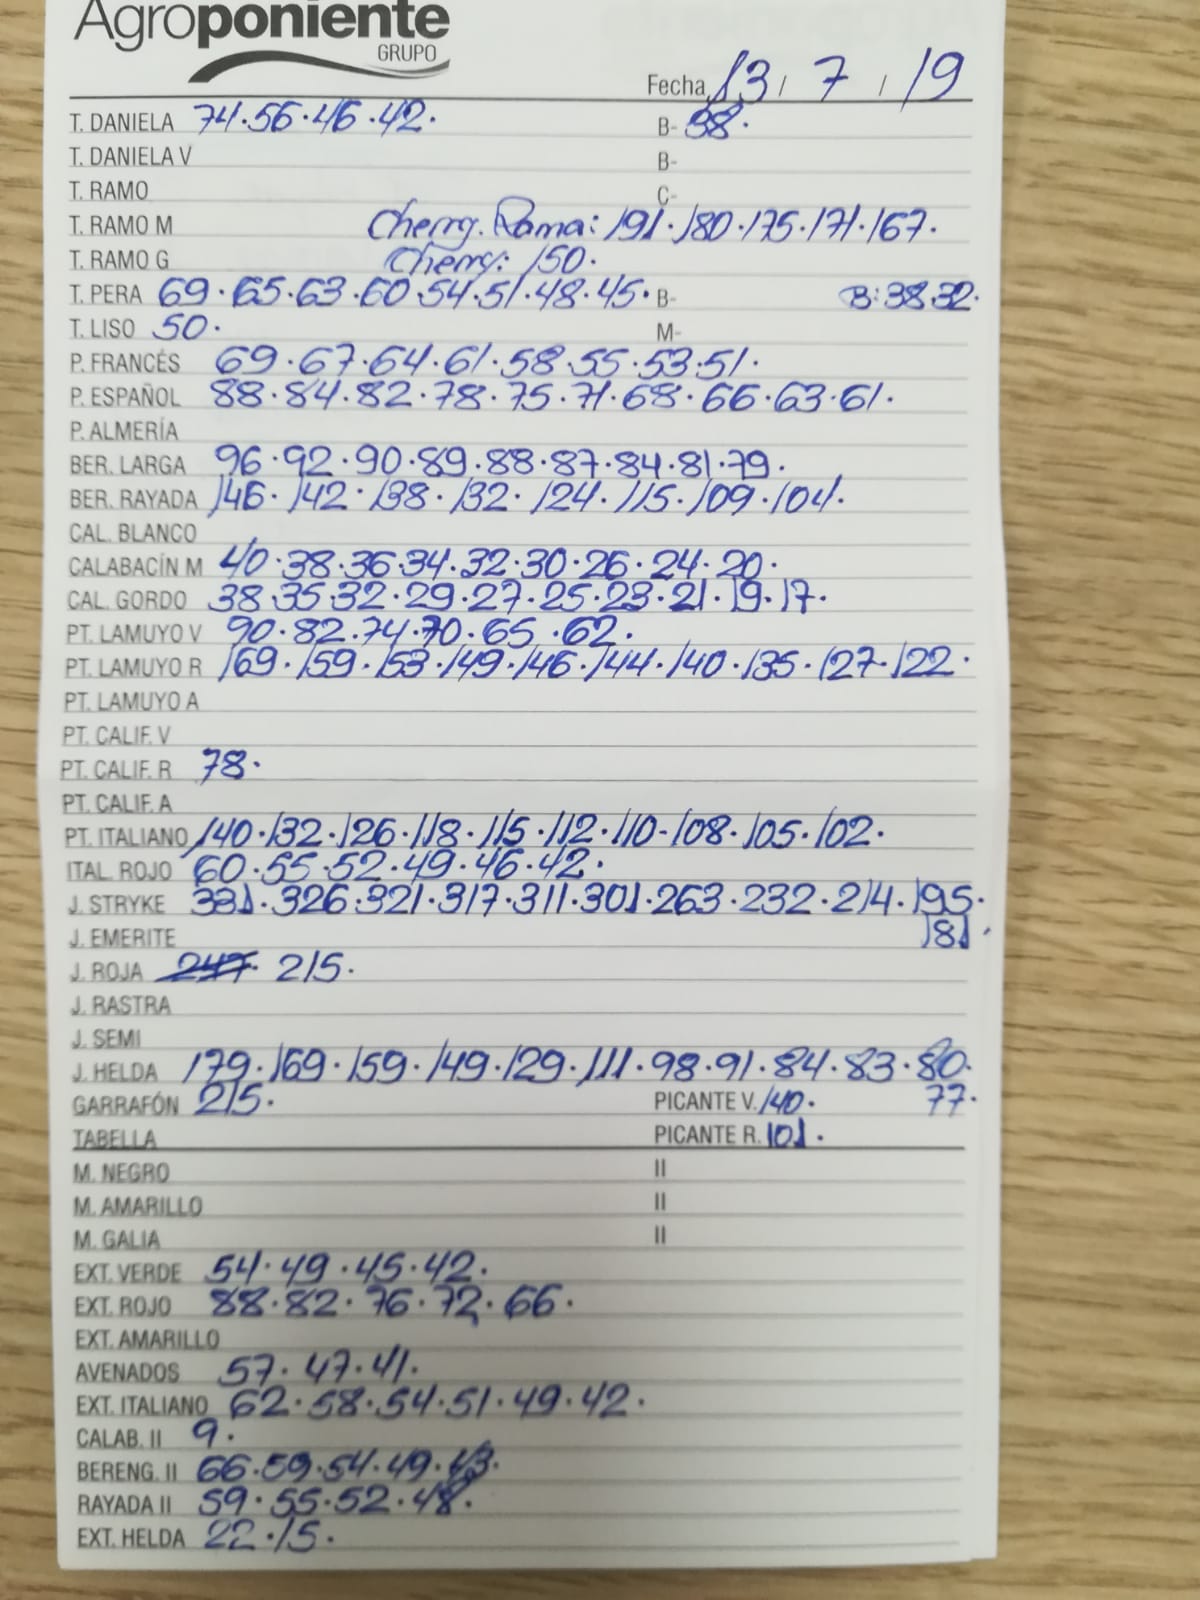 Agroponiente
GRUPO
Fecha 13 / 7 / 19
T. DANIELA 74.56.46.42. B- 38.
T. DANIELA V B-
T. RAMO C-
T. RAMO M Cherry. Rama: 191.180.175.171.167.
T. RAMO G Cherry: 150.
T. PERA 69.65.63.60.54.51.48.45. B- B:38.32.
T. LISO 50. M-
P. FRANCÉS 69.67.64.61.58.55.53.51.
P. ESPAÑOL 88.84.82.78.75.71.68.66.63.61.
P. ALMERÍA
BER. LARGA 96.92.90.89.88.87.84.81.79.
BER. RAYADA 146.142.138.132.124.115.109.104.
CAL. BLANCO
CALABACÍN M 40.38.36.34.32.30.26.24.20.
CAL. GORDO 38.35.32.29.27.25.23.21.19.17.
PT. LAMUYO V 90.82.74.70.65.62.
PT. LAMUYO R 169.159.153.149.146.144.140.135.127.122.
PT. LAMUYO A
PT. CALIF. V
PT. CALIF. R 78.
PT. CALIF. A
PT. ITALIANO 140.132.126.118.115.112.110-108.105.102.
ITAL. ROJO 60.55.52.49.46.42.
J. STRYKE 331.326.321.317.311.301.263.232.214.195.
J. EMERITE 181.
J. ROJA 215.
J. RASTRA
J. SEMI
J. HELDA 179.169.159.149.129.111.98.91.84.83.80.
GARRAFÓN 215. PICANTE V. 140. 77.
TABELLA PICANTE R. 101.
M. NEGRO II
M. AMARILLO II
M. GALIA II
EXT. VERDE 54.49.45.42.
EXT. ROJO 88.82.76.72.66.
EXT. AMARILLO
AVENADOS 57.47.41.
EXT. ITALIANO 62.58.54.51.49.42.
CALAB. II 9.
BERENG. II 66.59.54.49.43.
RAYADA II 59.55.52.48.
EXT. HELDA 22.15.